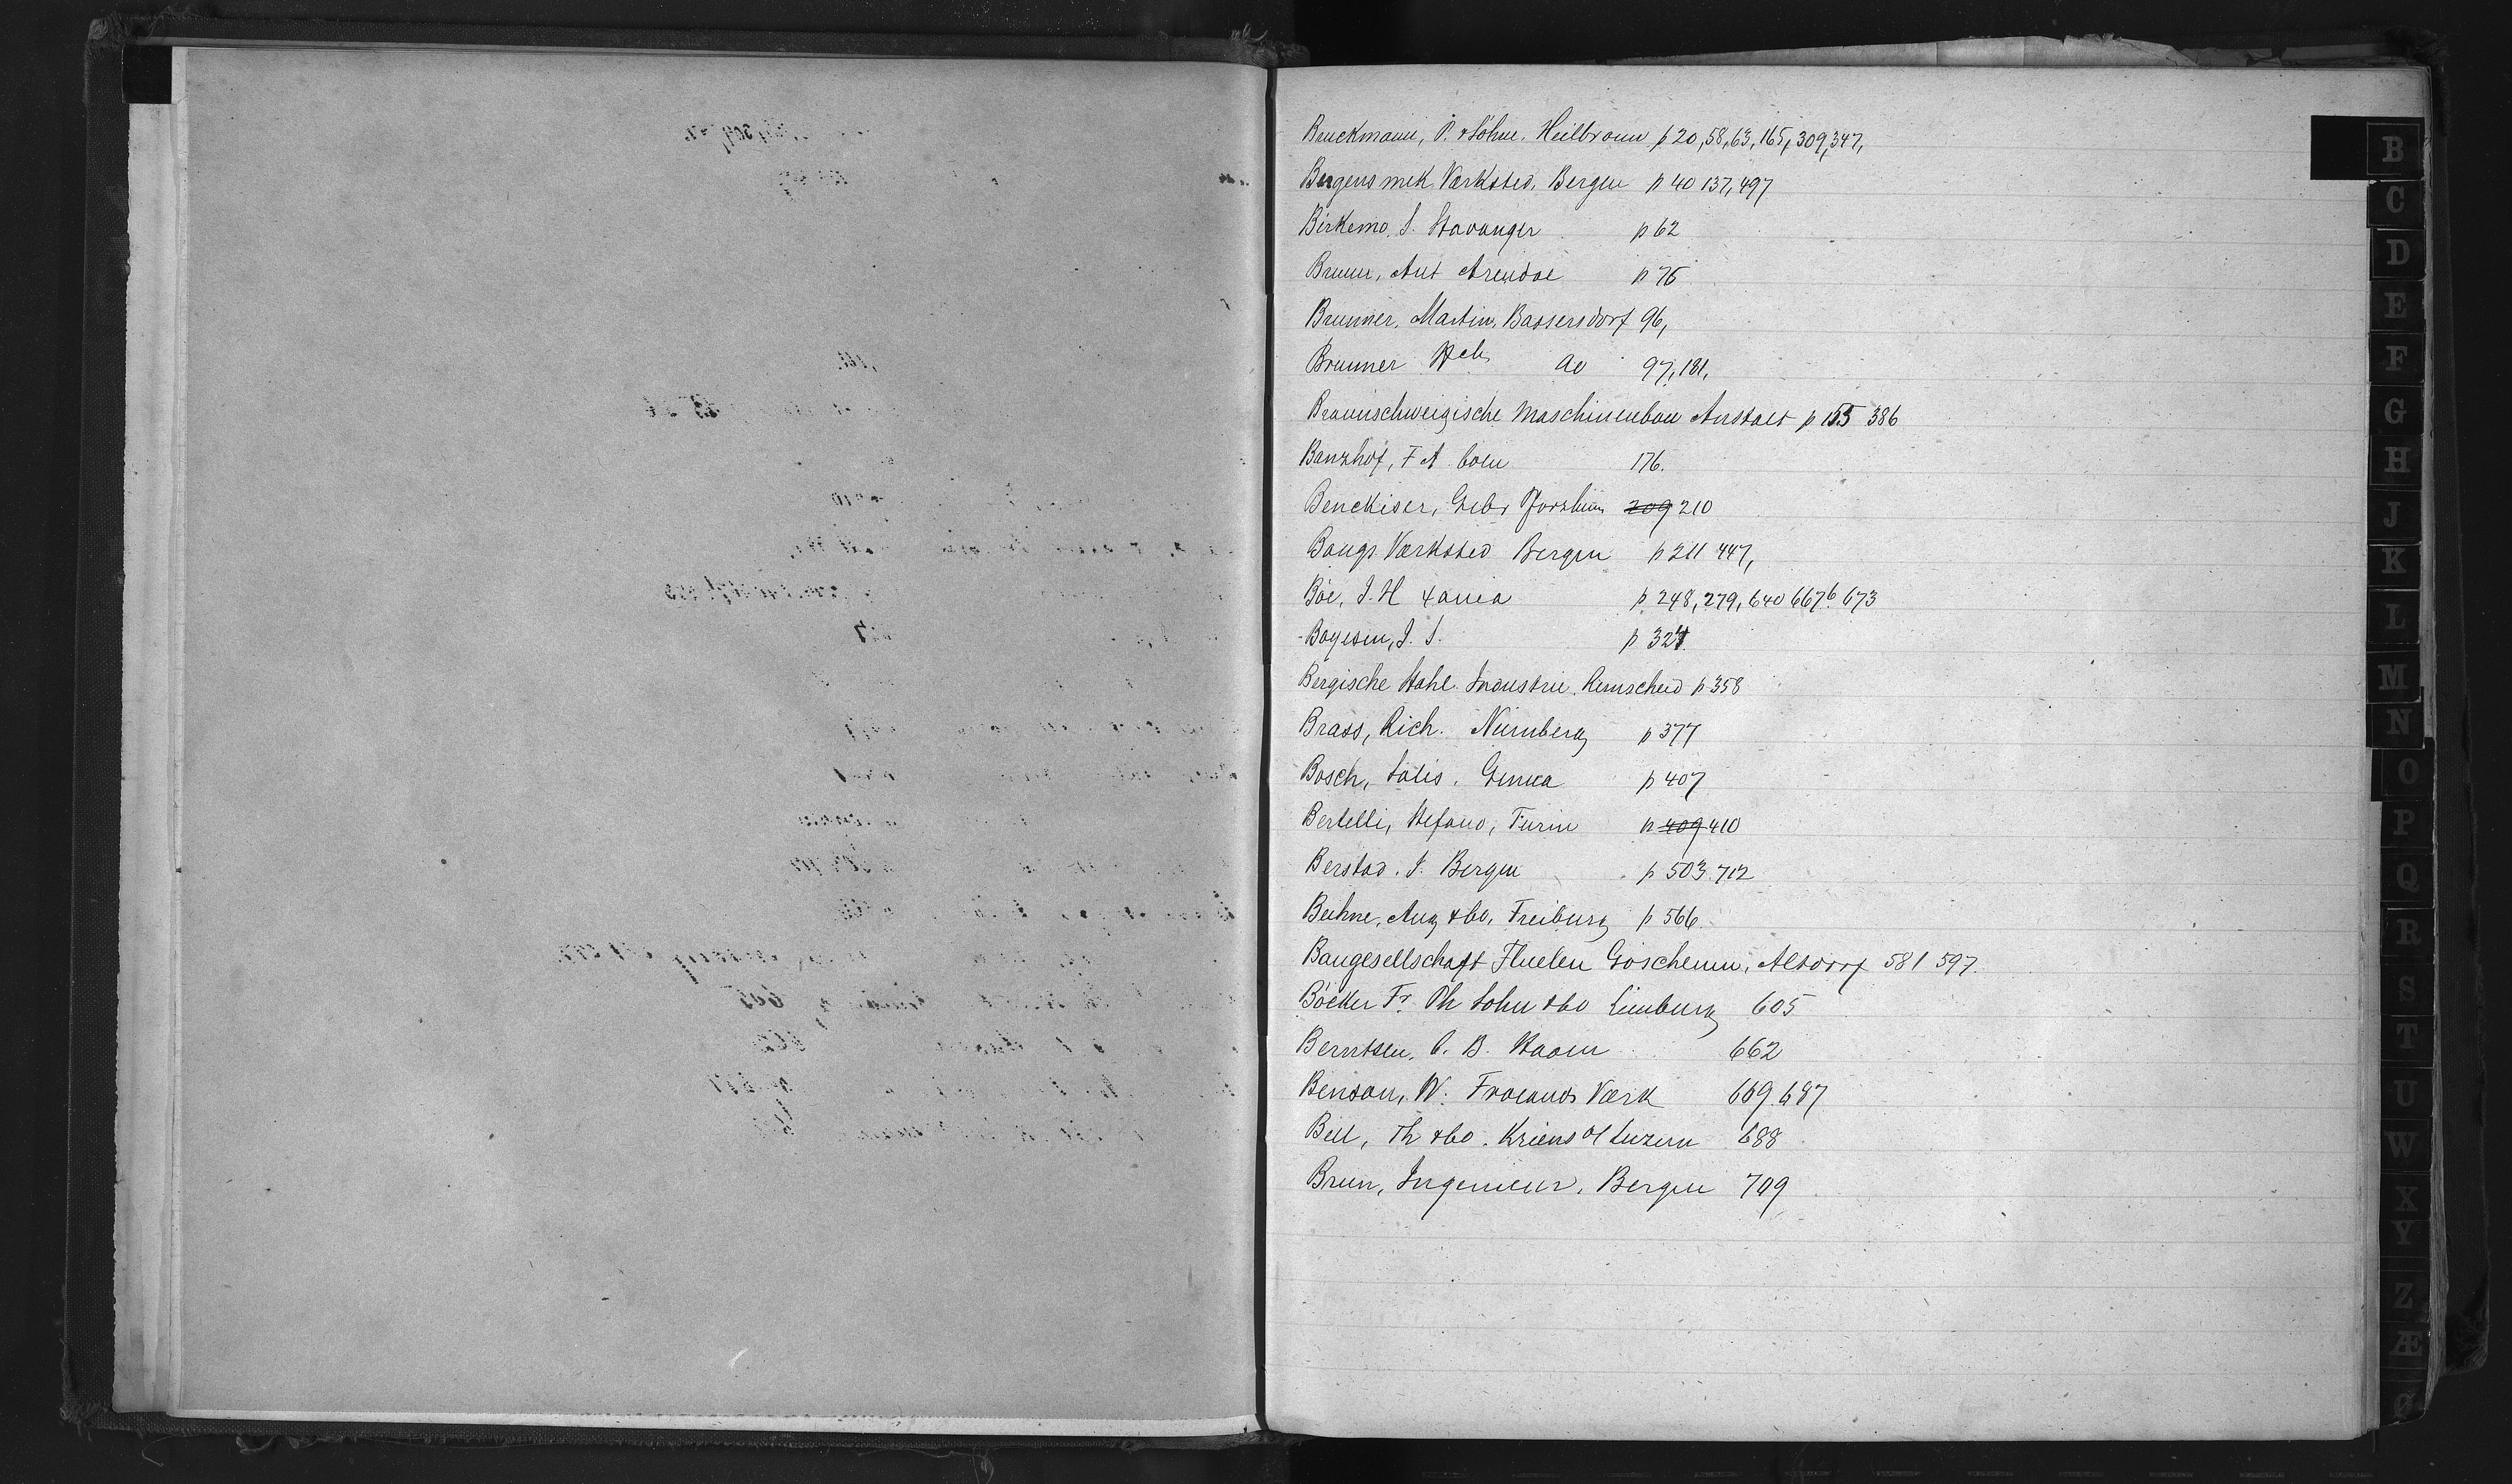 Bruckmann, P. & Söhne. Heilbronn p 20, 58, 63, 165, 309, 347,
Bergens mek. Værksted. Bergen p 40 137, 497
Birkemo. S. Stavanger p 62
Bruun, Ant Arendal p 75
Brunner, Martin, Bassersdorf 96,
Brunner Hch do 97, 181,
Braunschweigische Maschinenbau Anstalt p 155 386
Banzhof, F A. Cöln 176.
Benckiser, Gebr Pforzheim 209 210
Baugs Værksted Bergen p 211 447,
Böe, J. H Xania p. 248, 279, 640 667 b 673
Boyesen, J. S. p 324
Bergische Stahl. Industrie. Remscheid p 358
Brass, Rich. Nürnberg p 377
Bosch, Salis. Genua p 407
Bertelli, Stefano, Turin p 409 410
Berstad. J. Bergen p 503. 712
Beuhne, Aug & Co, Freiburg p 566.
Baugesellschaft Fluelen Göschenen, Altdorf 581 597.
Böcker Fr. Ph Sohn & Co Limburg 605
Berntsen, C. B. Skoien 662
Benson, W. Frolands Værk 669. 687
Bell, Th & Co. Kriens b/ Luzern 688
Brun, Ingenieur, Bergen 709
B
C
D
E
F
G
H
J
K
L
M
N
O
P
Q
R
S
T
U
W
X
Y
Z
Æ
Ø